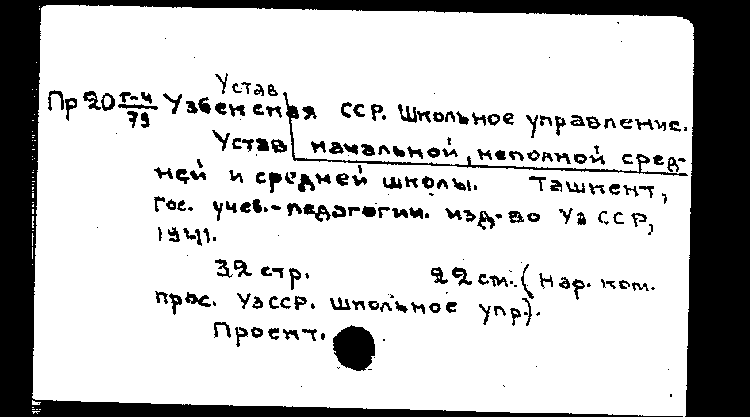 Устав
Пр 20 г-4/79 Узбекская ССР. Школьное управление.
Устав начальной, неполной сред-
ней и средней школы. Ташкент,
Гос. учеб.-педагогич. изд-во УзССР,
1941.
32 стр. 22 см. (Нар. ком.
прос. УзССР. Школьное упр.).
Проект.